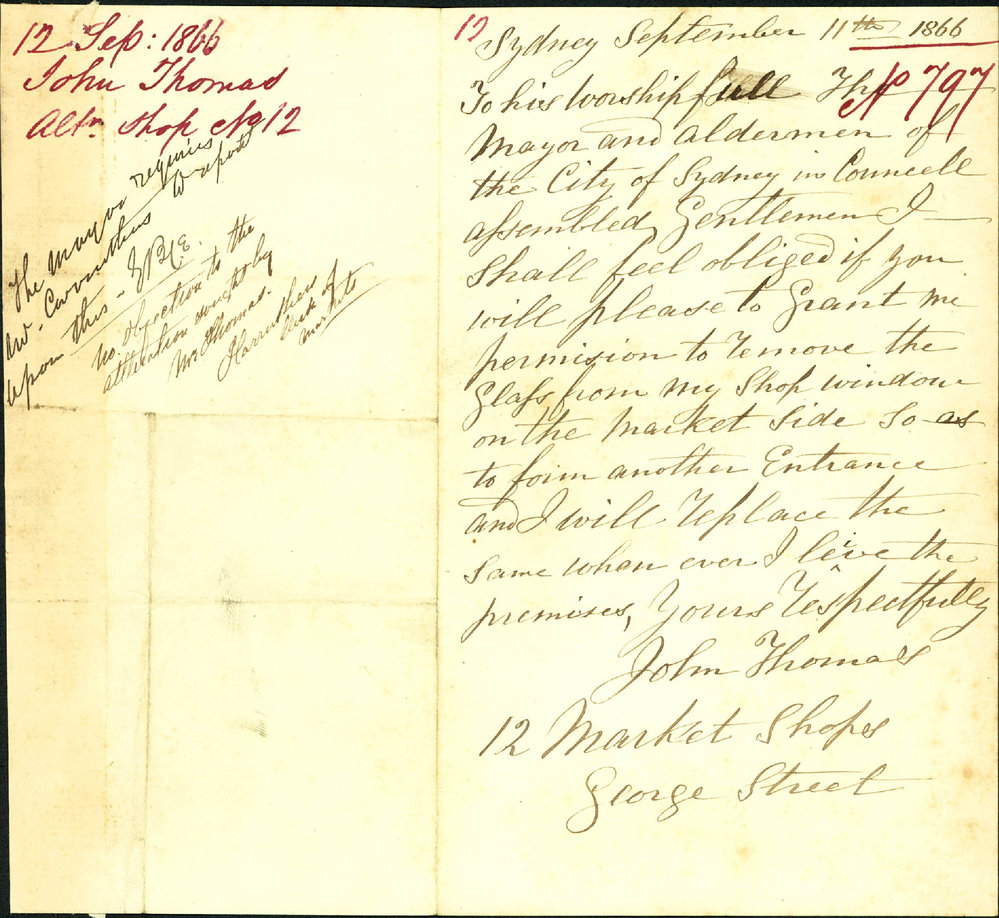 12 Sep: 1866
John Thomas
Altn. Shop No 12
The Mayor requires
Mr Carruthers to report
upon this -
no objection to the
alteration sought by
Mr Thomas.
J Carruthers
Clerk of
Markets
12
Sydney September 11th 1866
No 797
To his Worshipfull The
Mayor and aldermen of
the City of Sydney in Councell
assembled, Gentlemen I
Shall feel obliged if you
will please to Grant me
permision to remove the
Glass from my Shop window
on the Market Side So as
to form another Entrance
and I will replace the
same when ever I leive the
premises, Yours respectfully
John Thomas
12 Market Shops
George Street